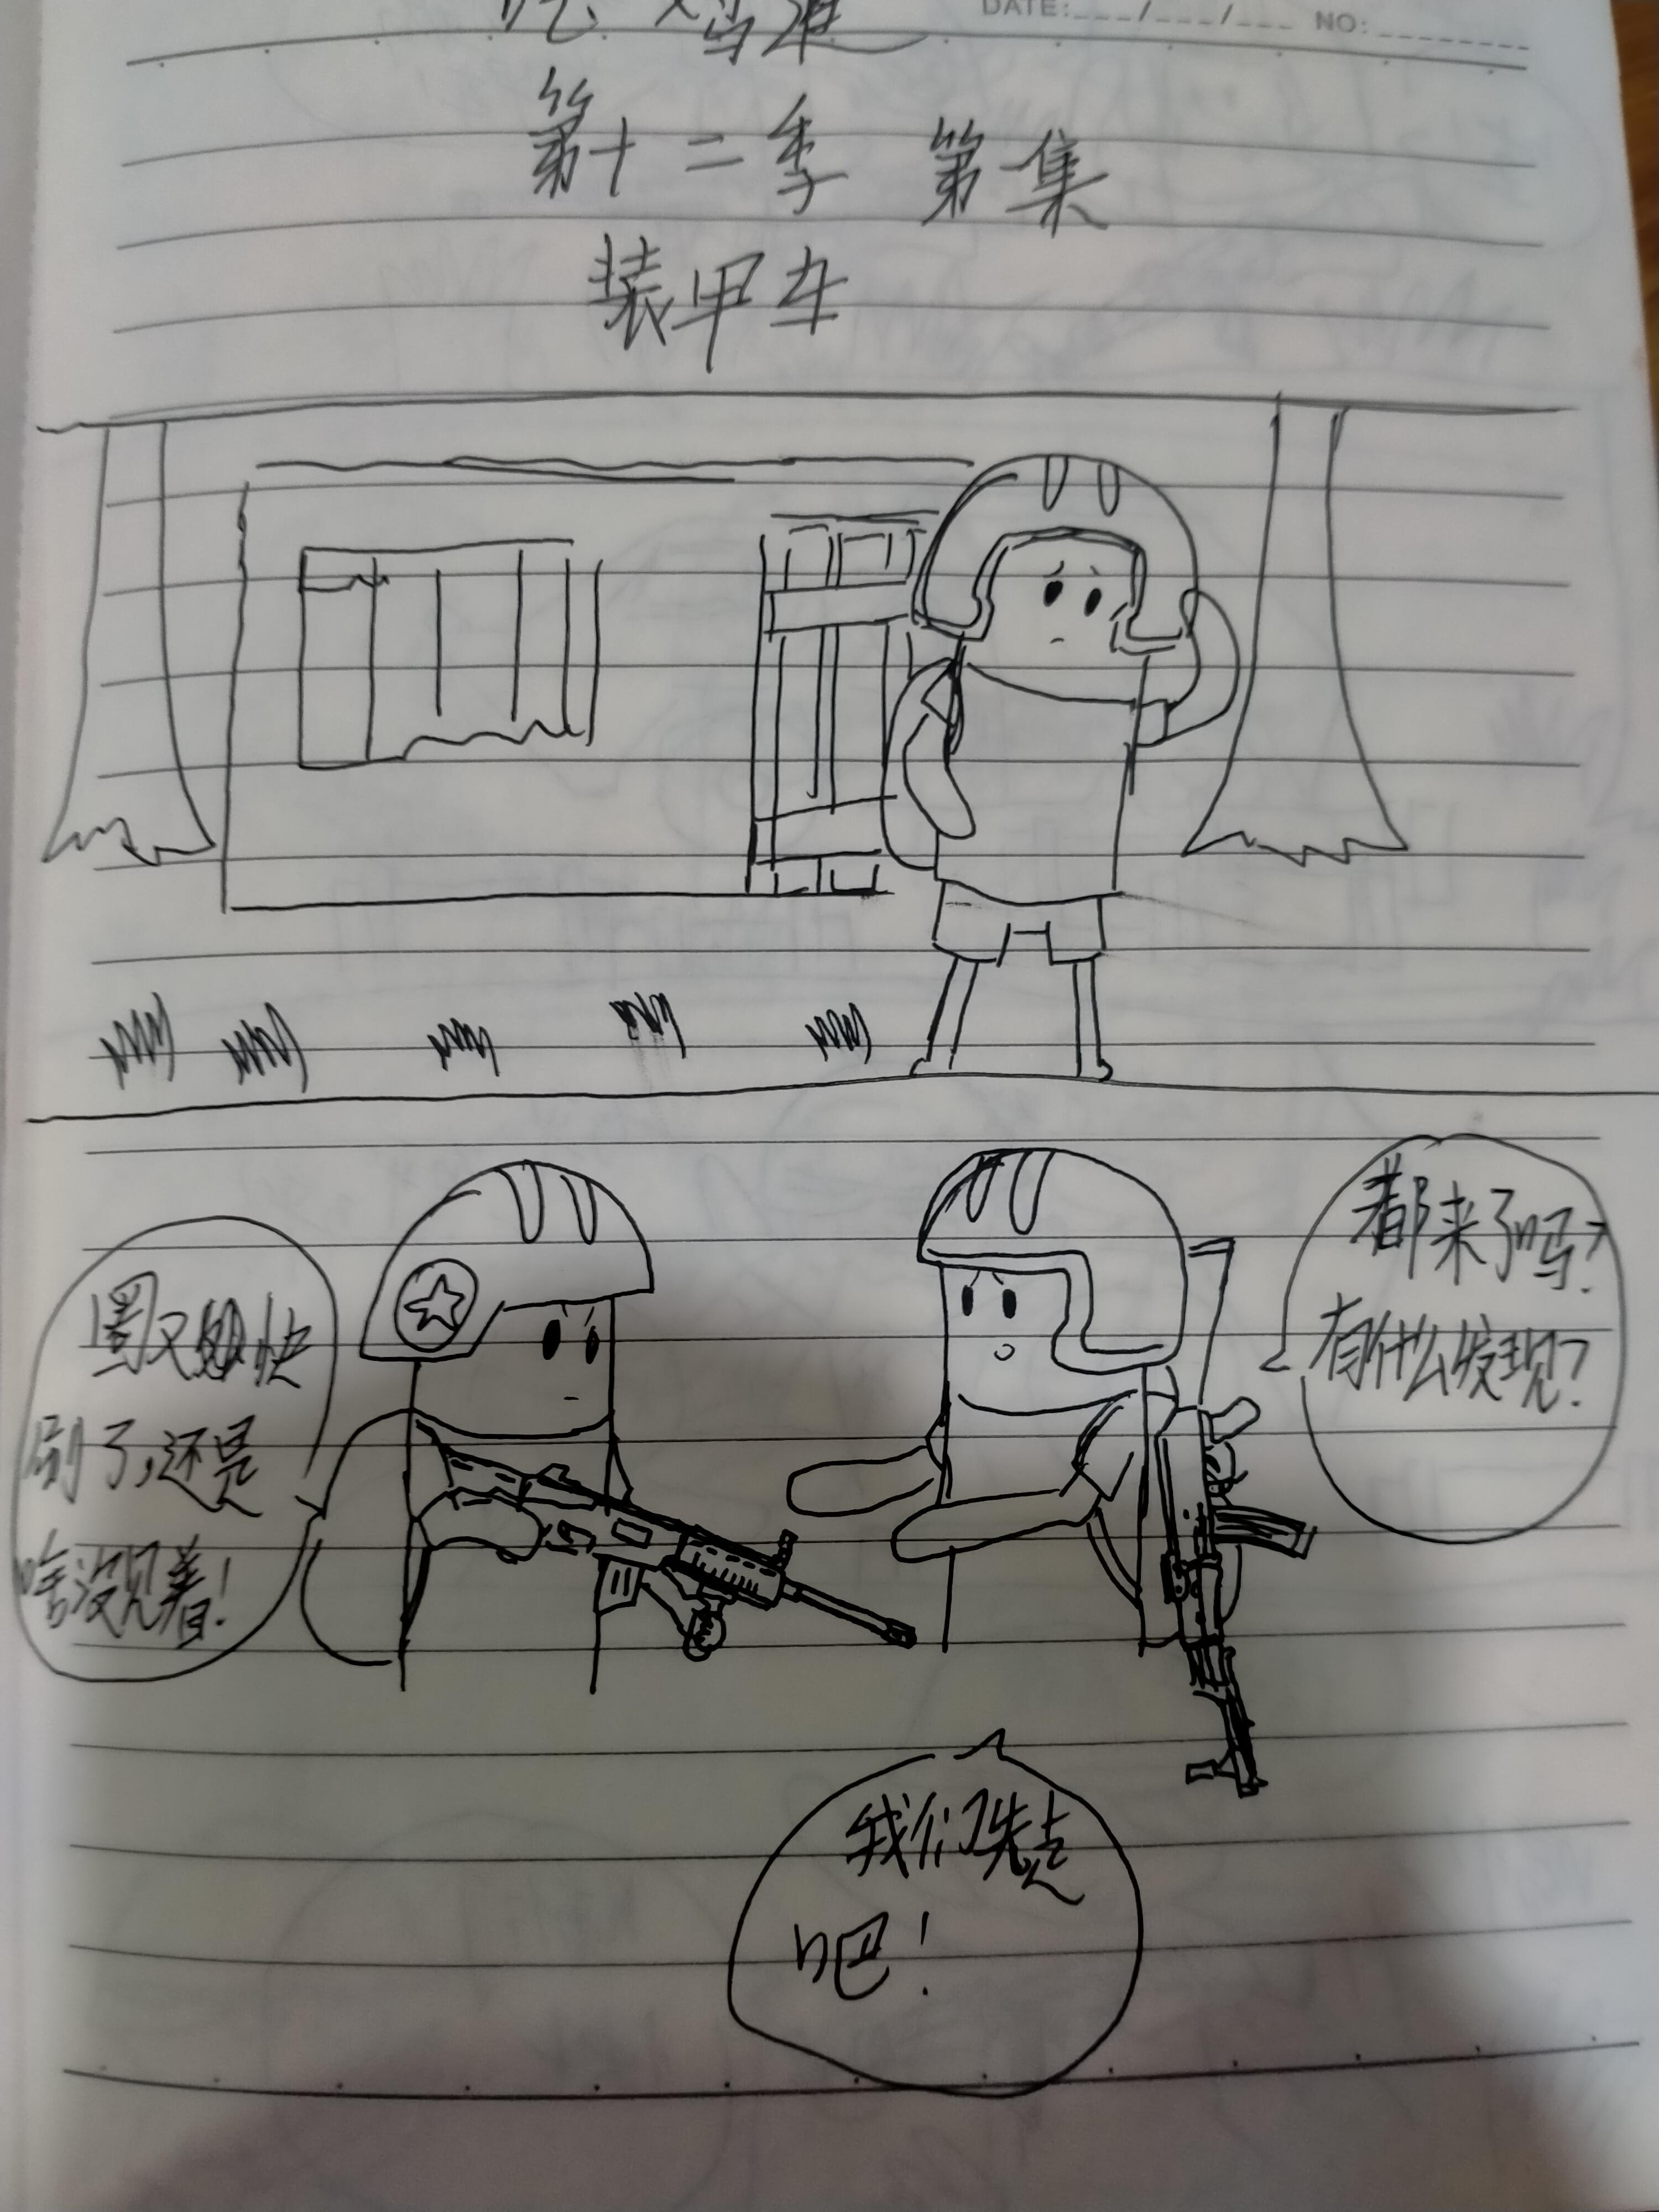 吃鸡罪
DATE:___/___/___ NO:________
第十二季 第一集
装甲车
都来了吗?
有什么发现?
圈又快
刷了,还是
啥没见着!
我们先走
吧!